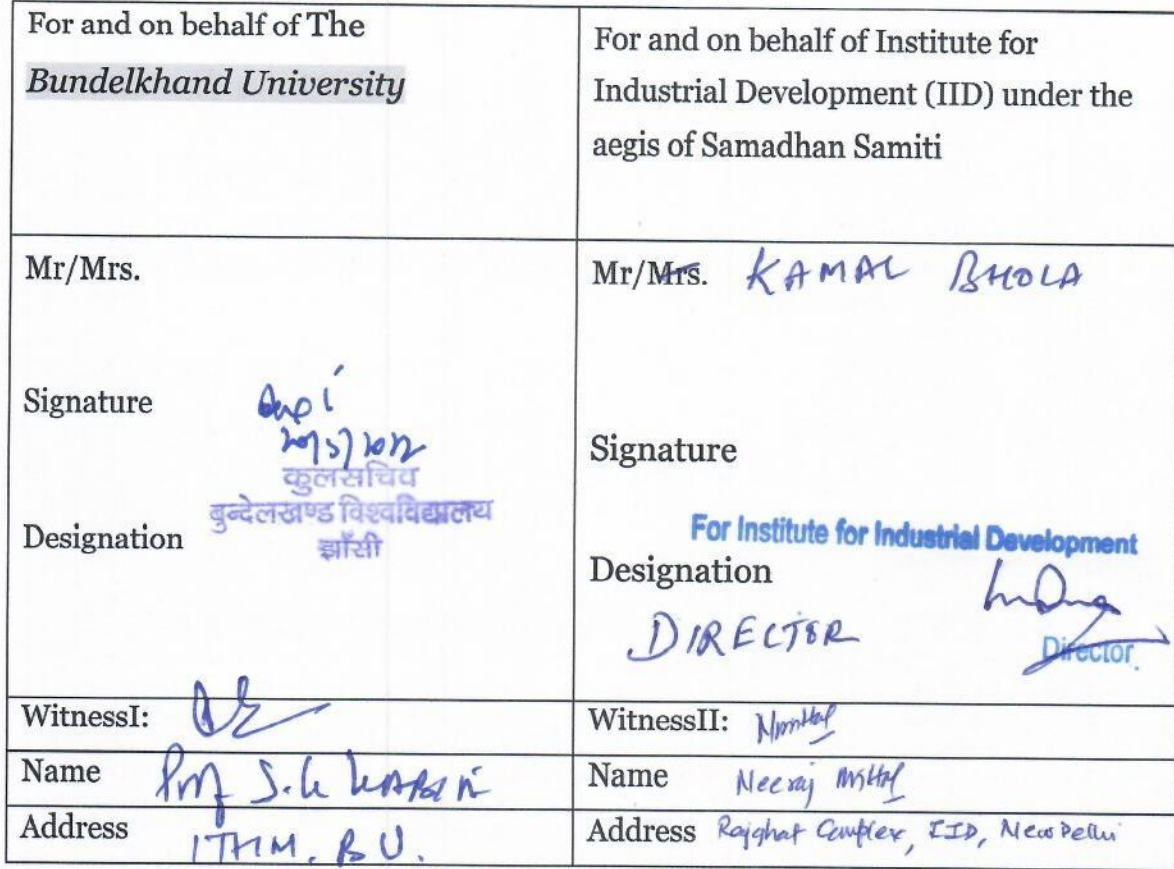 For and on behalf of The
Bundelkhand University
For and on behalf of Institute for
Industrial Development (IID) under the
aegis of Samadhan Samiti
Mr/Mrs.
Signature
कुलसचिव
बुन्देलखण्ड विश्वविद्यालय
झाँसी
Designation
Mr/Mrs. KAMAL BHOLA
Signature
For Institute for Industrial Development
Designation
DIRECTOR
Director
WitnessI:
WitnessII:
Name Prof S.K
Name Neeraj Mittal
Address ITHM, B U.
Address Rajghat Complex, IID, New Delhi